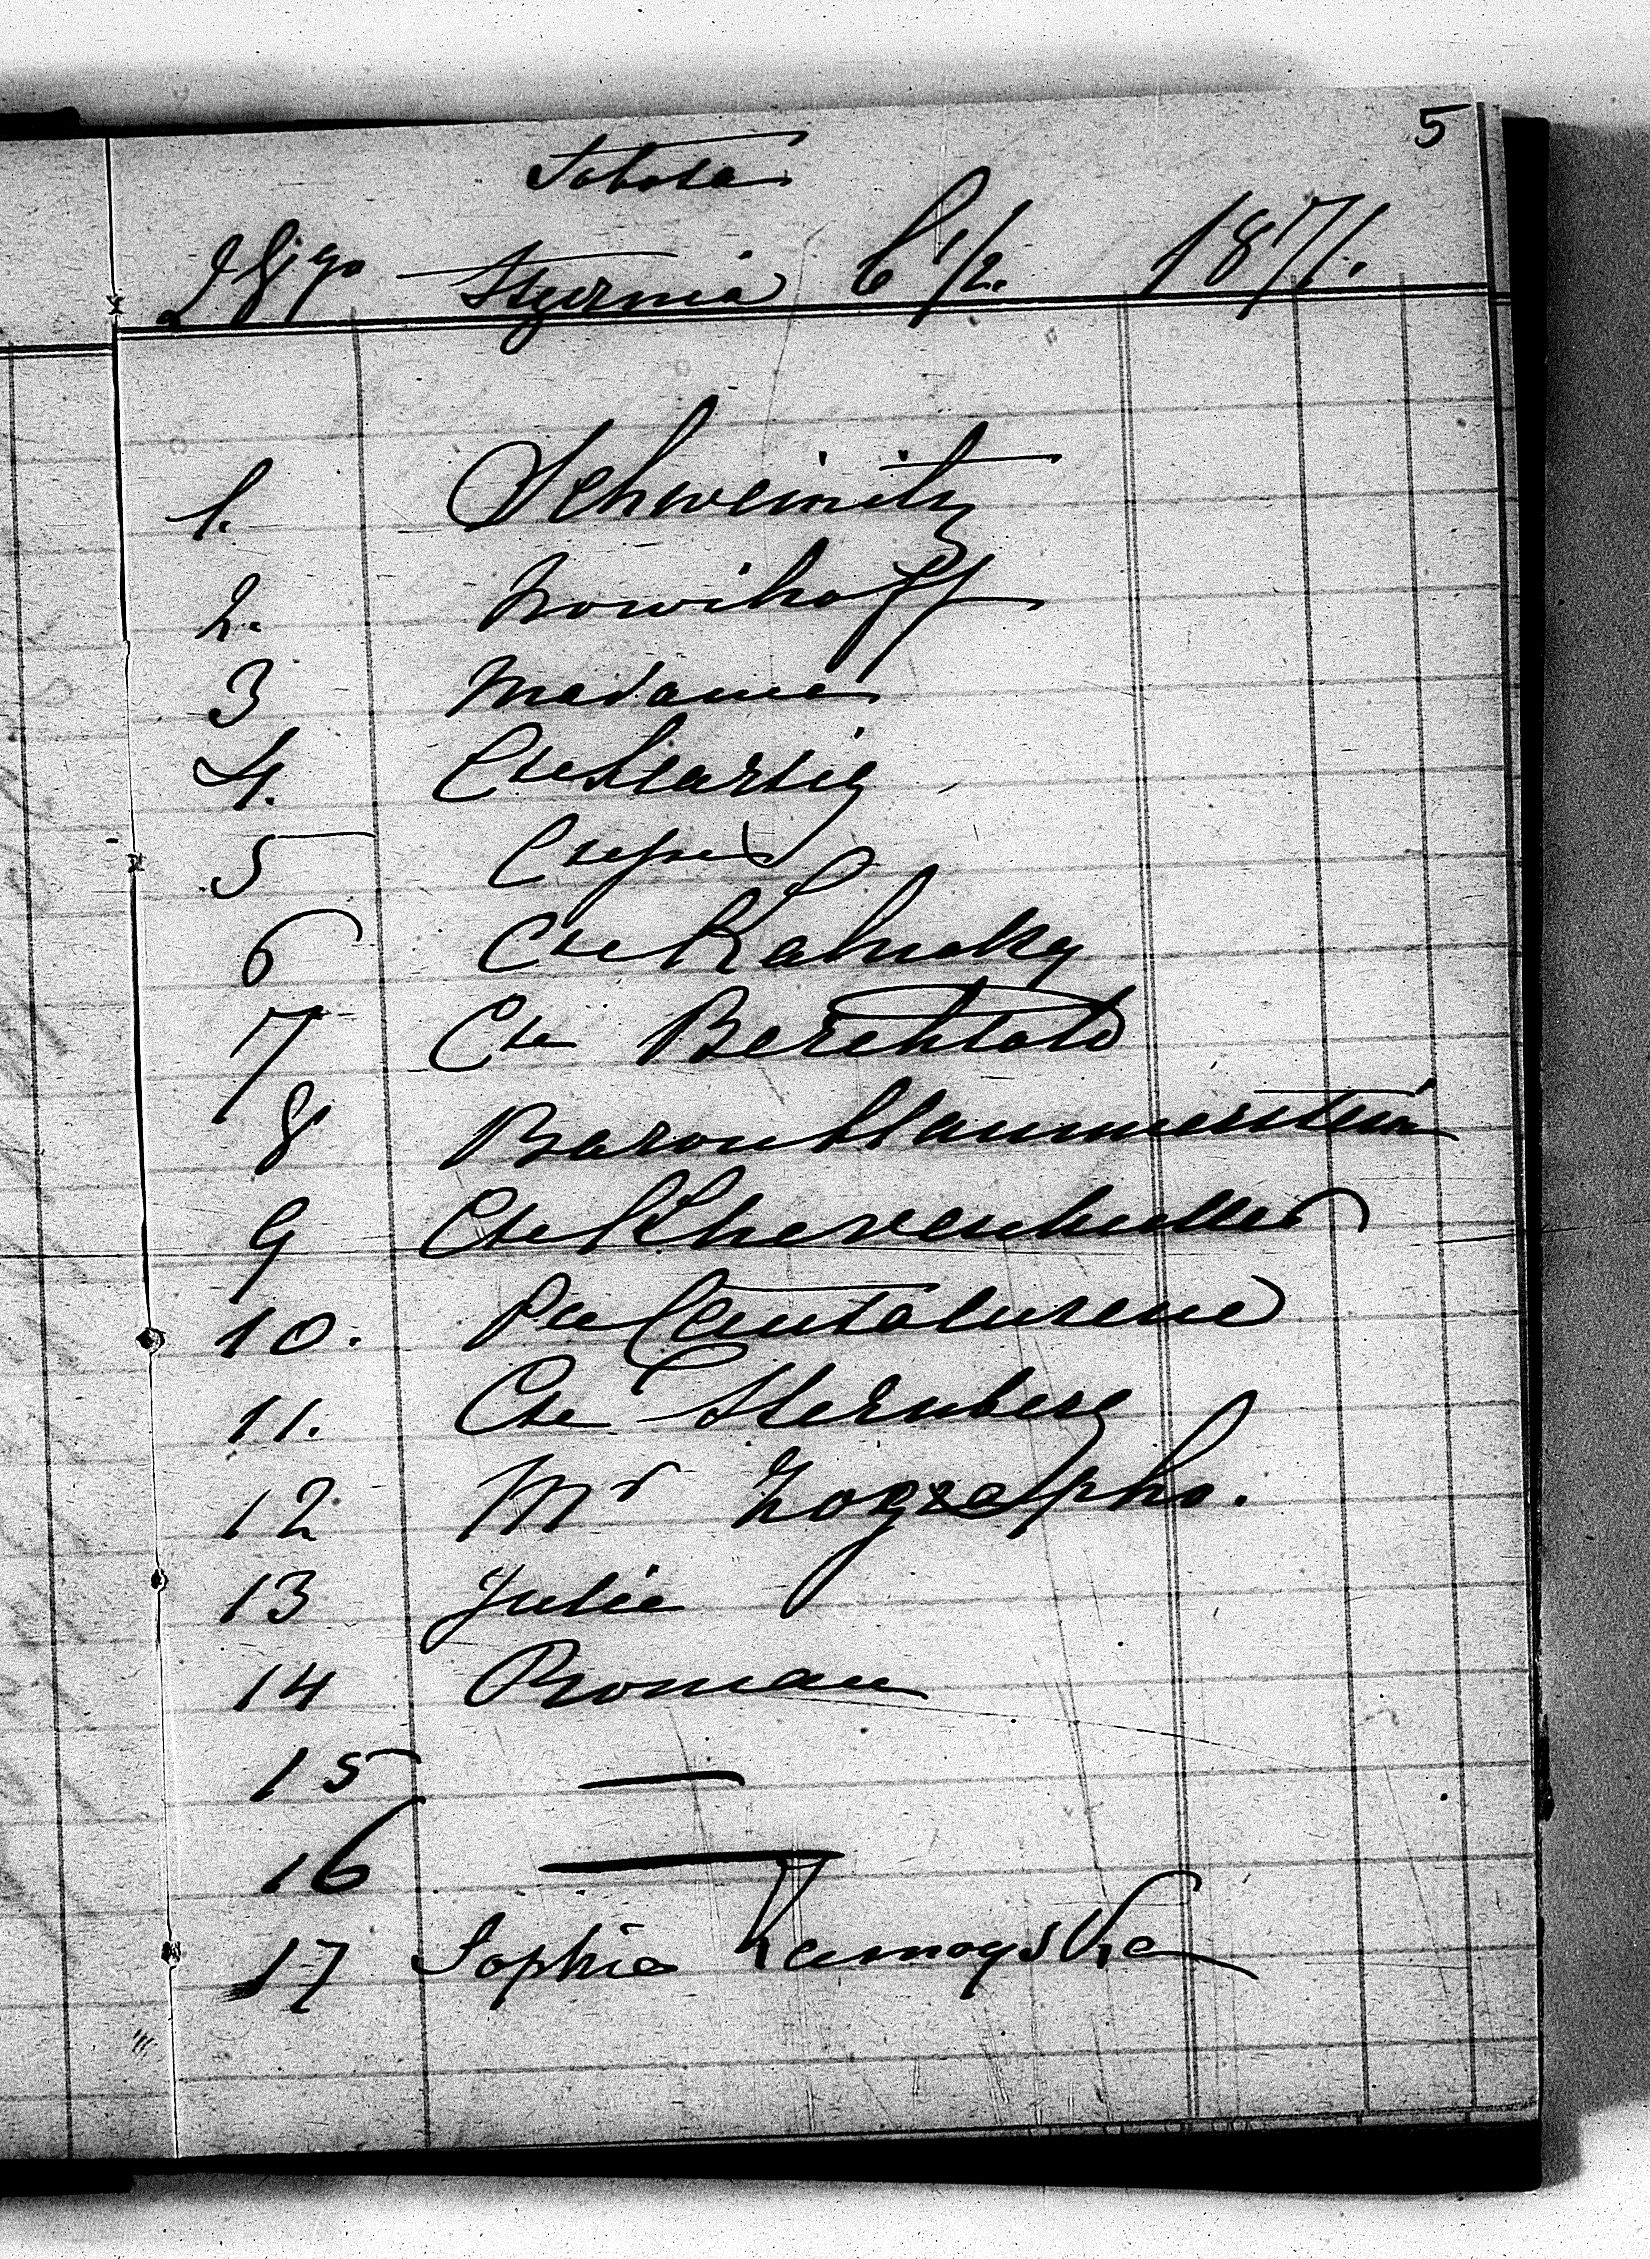 5
Sobota
28go Stycznia 6 1/2. 1871.
1. Schweinitz
2. Nowikoff
3 Madame
4. Cte Hartig
5
6 Cte Kalnoky
7 Cte Berchtold
8 Baron Hammerstein
9 Cte Khevenhuller
10. Pce Cantacusene
11. Cte Sternberg
12 Mr Zographo.
13 Julie
14 Roman
15 —
16 —
17 Sophie Zamoyska